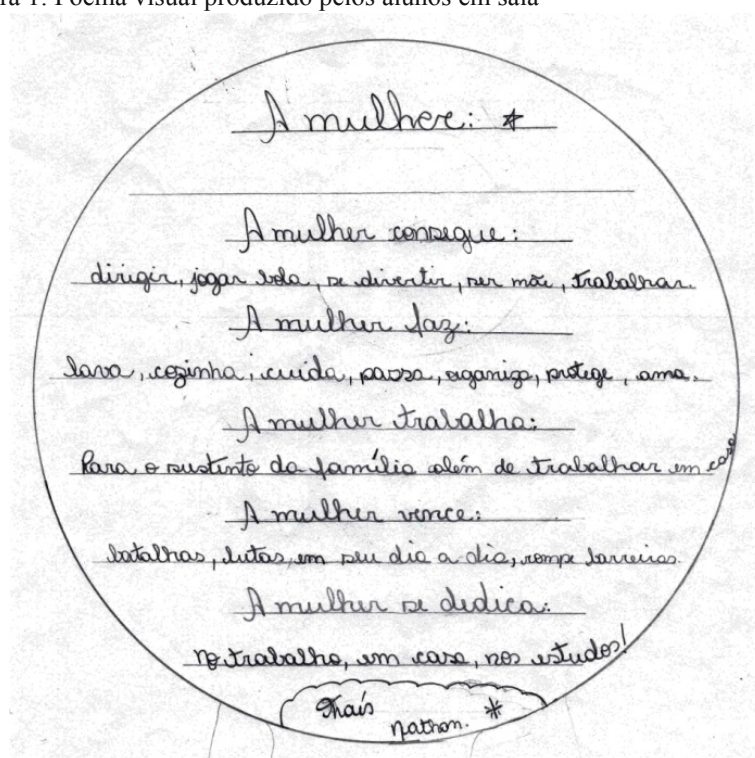 ra 1: Poema visual produzido pelos alunos em sala
A mulher: *
A mulher consegue:
dirigir, jogar bola, se divertir, ser mãe, trabalhar.
A mulher faz:
lava, cozinha, cuida, passa, organiza, protege, ama.
A mulher trabalha:
Para o sustinto da família além de trabalhar em casa
A mulher vence:
batalhas, lutas, em seu dia a dia, rompe barreiras.
A mulher se dedica:
no trabalho, em casa, nos estudos!
Thaís
nathan. *